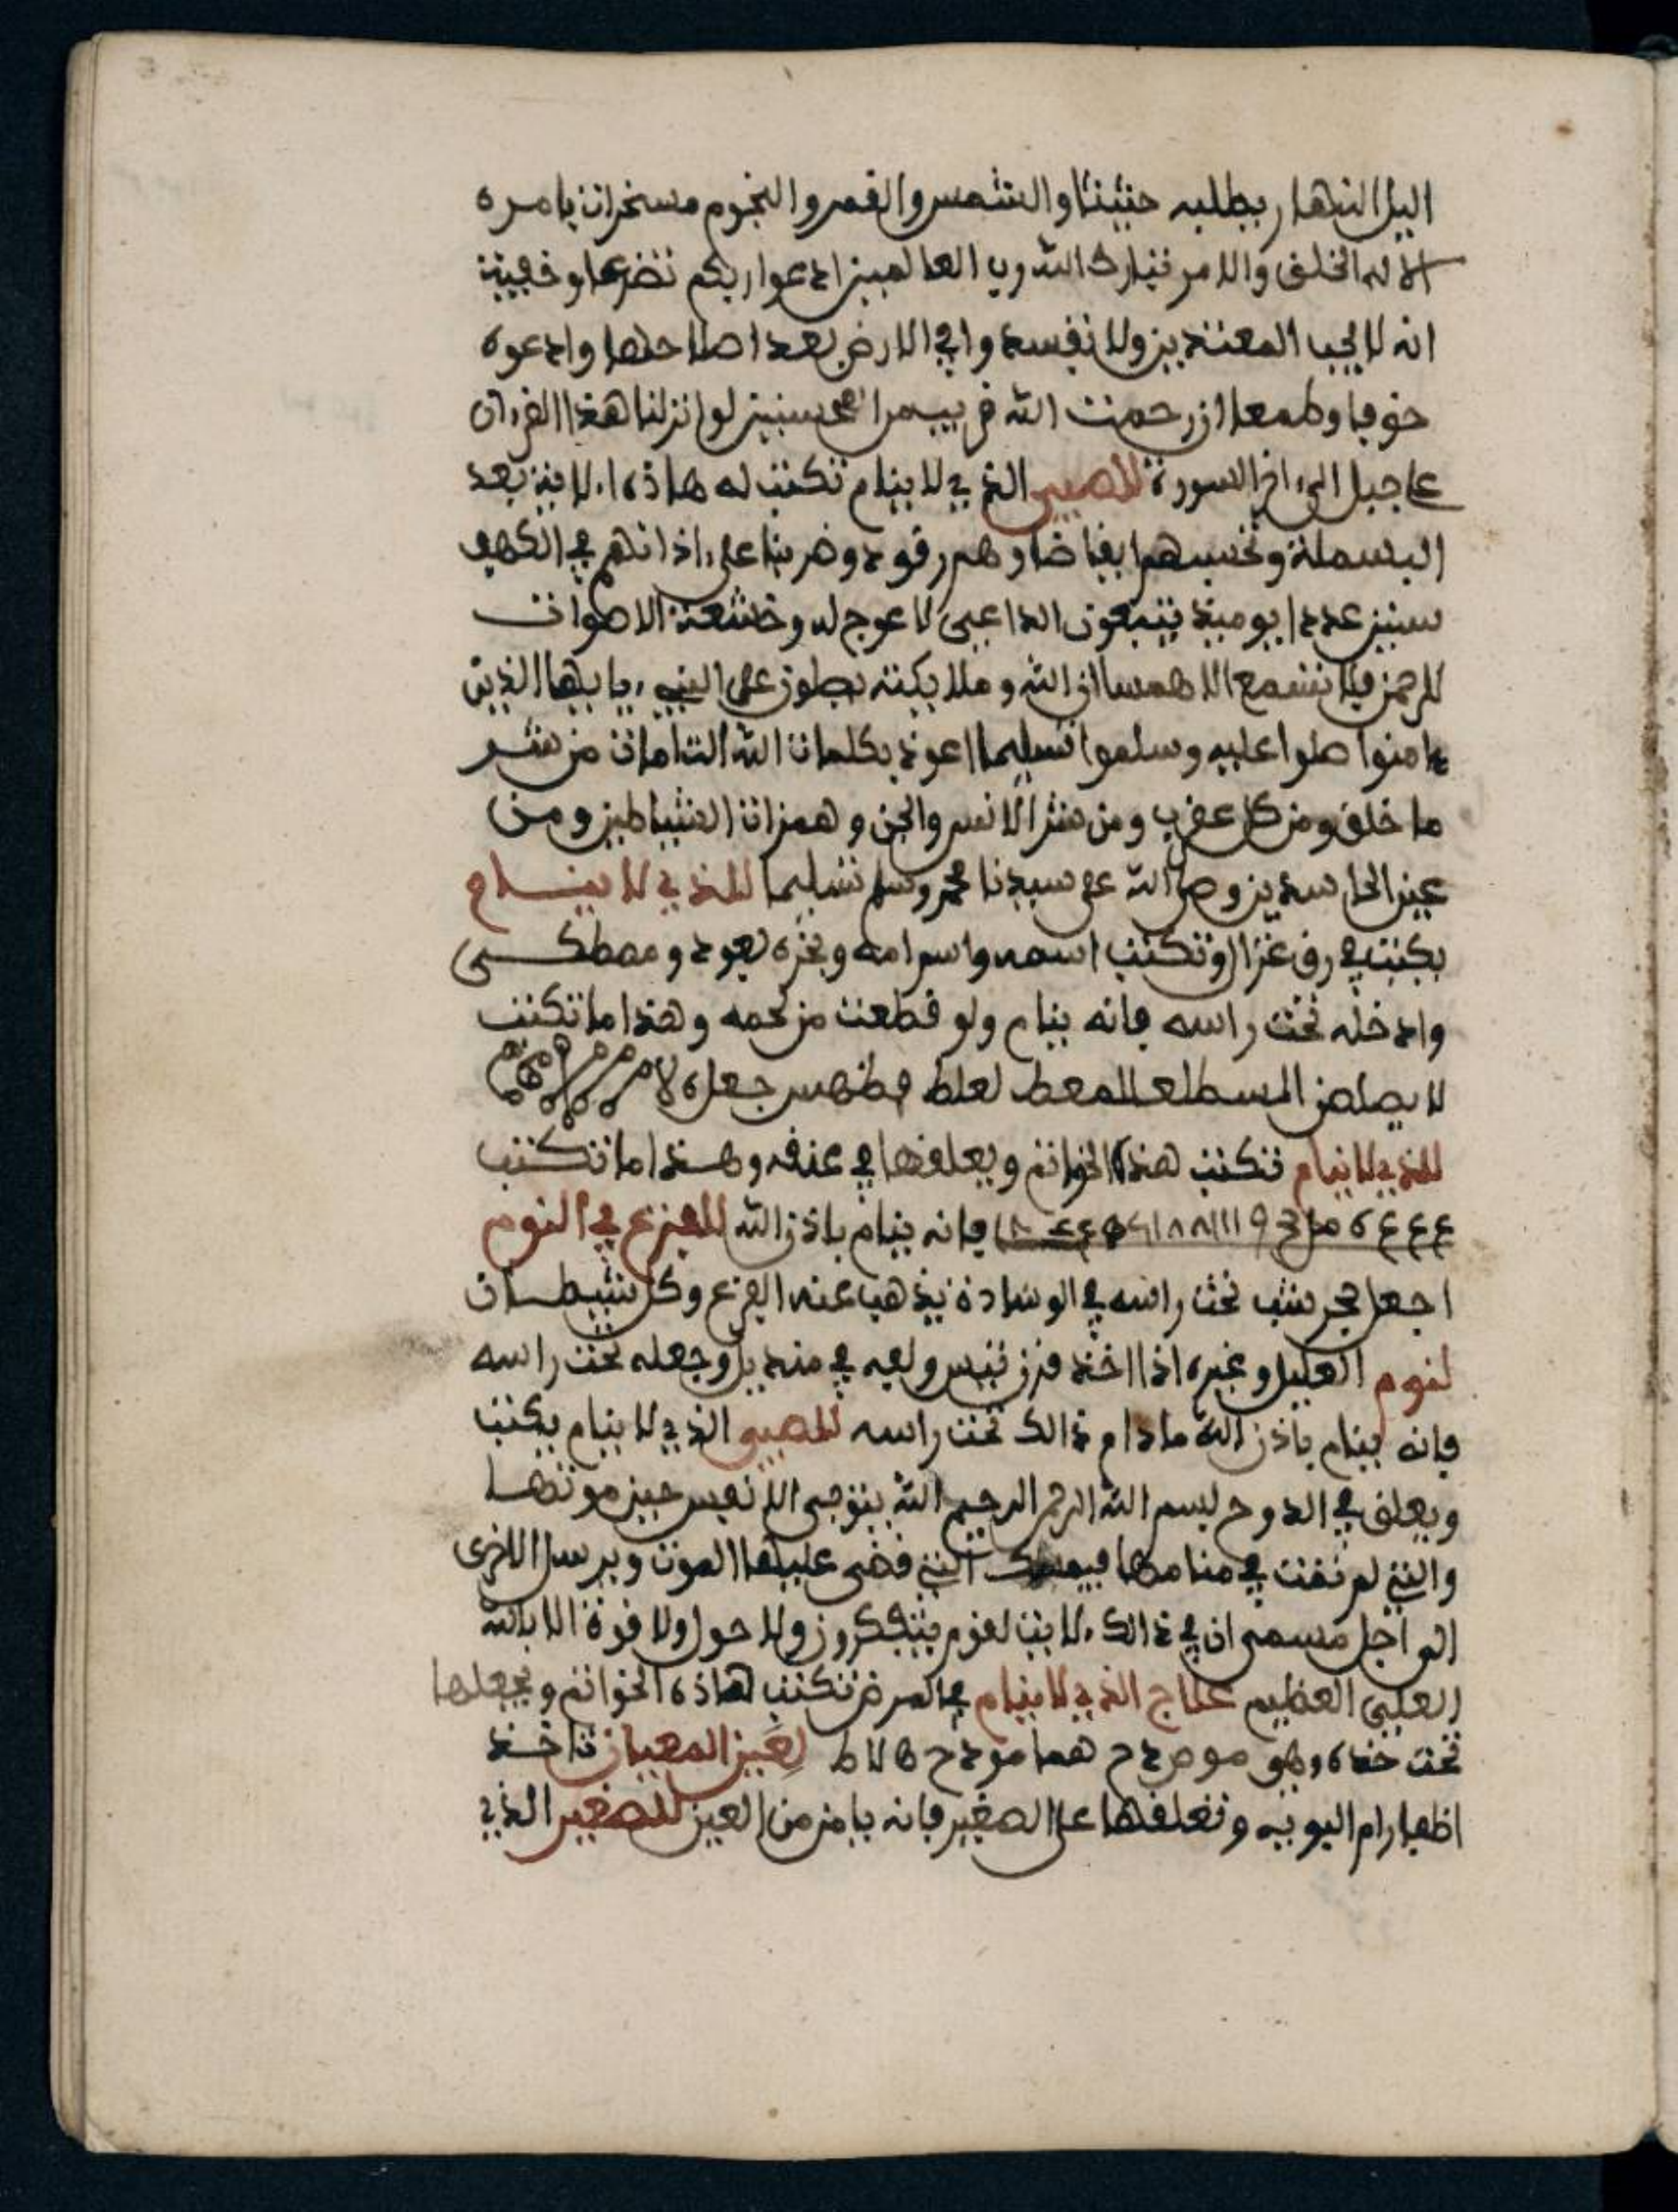 اليل النهار يطلبه حثيثا والشمس والقمر والنجوم مسخرات بامره
الا له الخلق والامر تبارك الله رب العالمين ادعوا ربكم تضرعا وخفية
انه لا يحب المعتدين ولا تفسدوا في الارض بعد اصلاحها وادعوه
خوفا وطمعا ان رحمت الله قريب من المحسنين لو انزلنا هذا القرءان
على جبل الى ءاخر السورة للصبي الذي لا ينام تكتب له هاذه الاية بعد
البسملة وتحسبهم ايقاضا وهم رقود وضربنا على ءاذانهم في الكهف
سنين عددا يوميذ يتبعون الداعي لا عوج له وخشعت الاصوات
للرحمن فلا تسمع الا همسا ان الله وملايكته يصلون على النبيء يايها الذين
ءامنوا صلوا عليه وسلموا تسليما اعوذ بكلمات الله التامات من شر
ما خلق ومن كل عقرب ومن شر الانس والجن وهمزات الشياطين ومن
عين الحاسدين وصلى الله على سيدنا محمد وسلم تسليما للذي لا ينام
يكتب في رق غزال وتكتب اسمه واسم امه وبخره بعود ومصطكى
وادخله تحت راسه فانه ينام ولو قطعت من لحمه وهذا ما تكتب
لا يصلص المسطلع للمعط لعلط جعل
للذي لا ينام تكتب هذه الخواتم ويعلقها في عنقه وهذا ما تكتب
ع ع ع ع فانه ينام باذن الله للفزع في النوم
اجعل حجر شب تحت راسه في الوسادة يذهب عنه الفزع وكل شيطان
لنوم العليل وغيره اذا اخذ قرن تيس ولفه في منديل وجعله تحت راسه
فانه ينام باذن الله ما دام ذالك تحت راسه للصبي الذي لا ينام يكتب
ويعلق في الدوح بسم الله الرحمن الرحيم الله يتوفى الانفس حين موتها
والتي لم تمت في منامها فيمسك التي قضى عليها الموت ويرسل الاخرى
الى اجل مسمى ان في ذالك لايت لقوم يتفكرون ولا حول ولا قوة الا بالله
العلي العظيم علاج الذي لا ينام في المرض تكتب هاذه الخواتم وتجعلها
تحت خده وهو لعين المعيان تاخذ
اظفار ام اليوبيه وتعلقها على الصغير فانه يامن من العين للصغير الذي